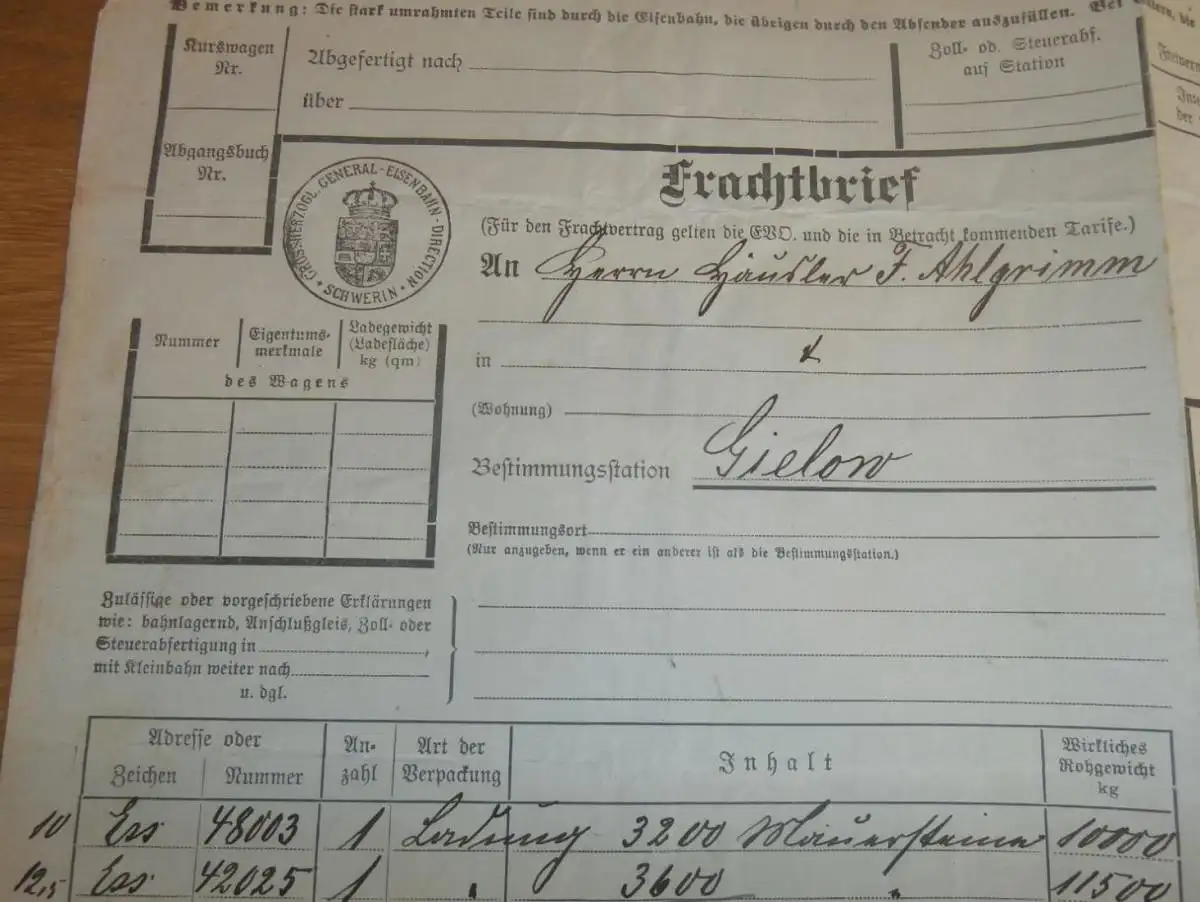 Bemerkung: Die stark umrahmten Teile sind durch die Eisenbahn, die übrigen durch den Absender auszufüllen. Bei
Kurswagen
Nr.
Abgefertigt nach
über
Zoll- od. Steuerabf.
auf Station
Abgangsbuch
Nr.
GROSSHERZOGL. GENERAL-EISENBAHN-DIRECTION
SCHWERIN
Frachtbrief
(Für den Frachtvertrag gelten die EVO. und die in Betracht kommenden Tarife.)
An Herrn Häusler F. Ahlgrimm
in
(Wohnung)
Bestimmungsstation Gielow
Bestimmungsort
(Nur anzugeben, wenn er ein anderer ist als die Bestimmungsstation.)
Nummer
Eigentums-
merkmale
Ladegewicht
(Ladefläche)
kg (qm)
des Wagens
Zulässige oder vorgeschriebene Erklärungen
wie: bahnlagernd, Anschlußgleis, Zoll- oder
Steuerabfertigung in
mit Kleinbahn weiter nach
u. dgl.
Adresse oder
Zeichen Nummer
An-
zahl
Art der
Verpackung
Inhalt
Wirkliches
Rohgewicht
kg
10 Ess 48003 1 Ladung 3200 Mauersteine 10000
12,5 Ess 42025 1 " 3600 " 11500